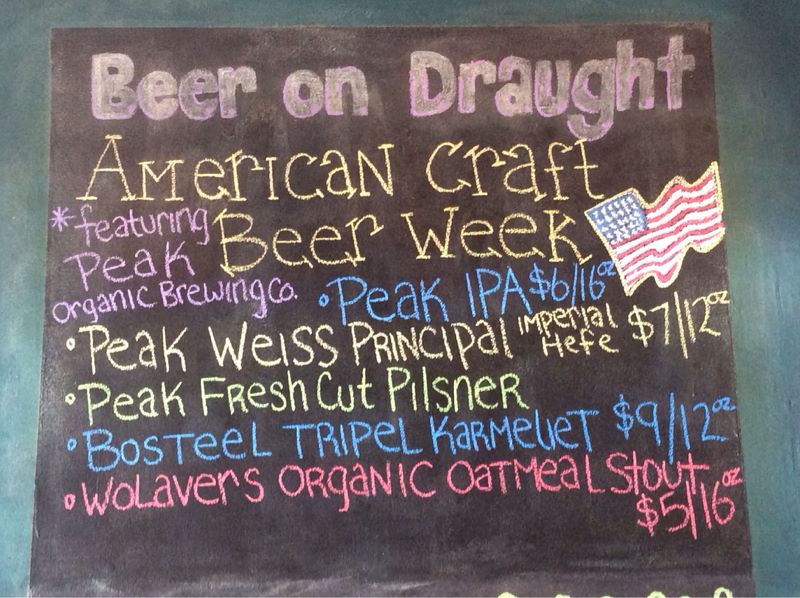 Beer on Draught
American Craft
Beer Week
*featuring
Peak
Organic Brewing Co.
• Peak IPA $6/16oz
• Peak Weiss Principal Imperial Hefe $7/12oz
• Peak Fresh Cut Pilsner
• Bosteel Tripel Karmeliet $9/12oz
• Wolavers Organic Oatmeal Stout
$5/16oz